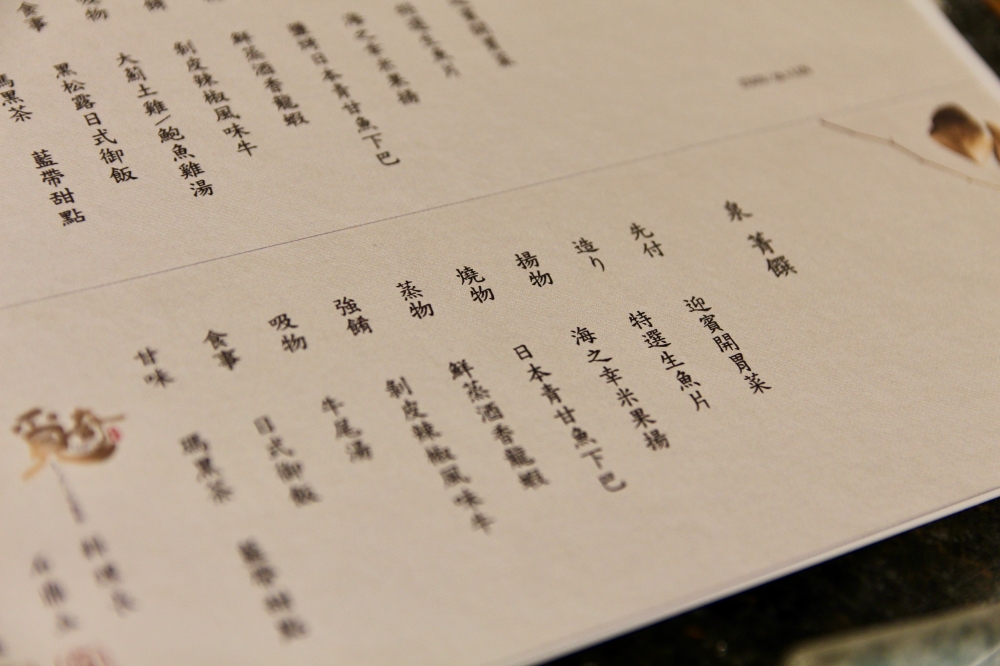 海之幸米果揚
日本青甘魚下巴
鮮蒸酒香龍蝦
剝皮辣椒風味牛
大薊土雞/鮑魚雞湯
食事 黑松露日式御飯
瑪黑茶 藍帶甜點
泉 菁饌
先付 迎賓開胃菜
造り 特選生魚片
揚物 海之幸米果揚
燒物 日本青甘魚下巴
蒸物 鮮蒸酒香龍蝦
強餚 剝皮辣椒風味牛
吸物 牛尾湯
食事 日式御飯
甘味 瑪黑茶 藍帶甜點